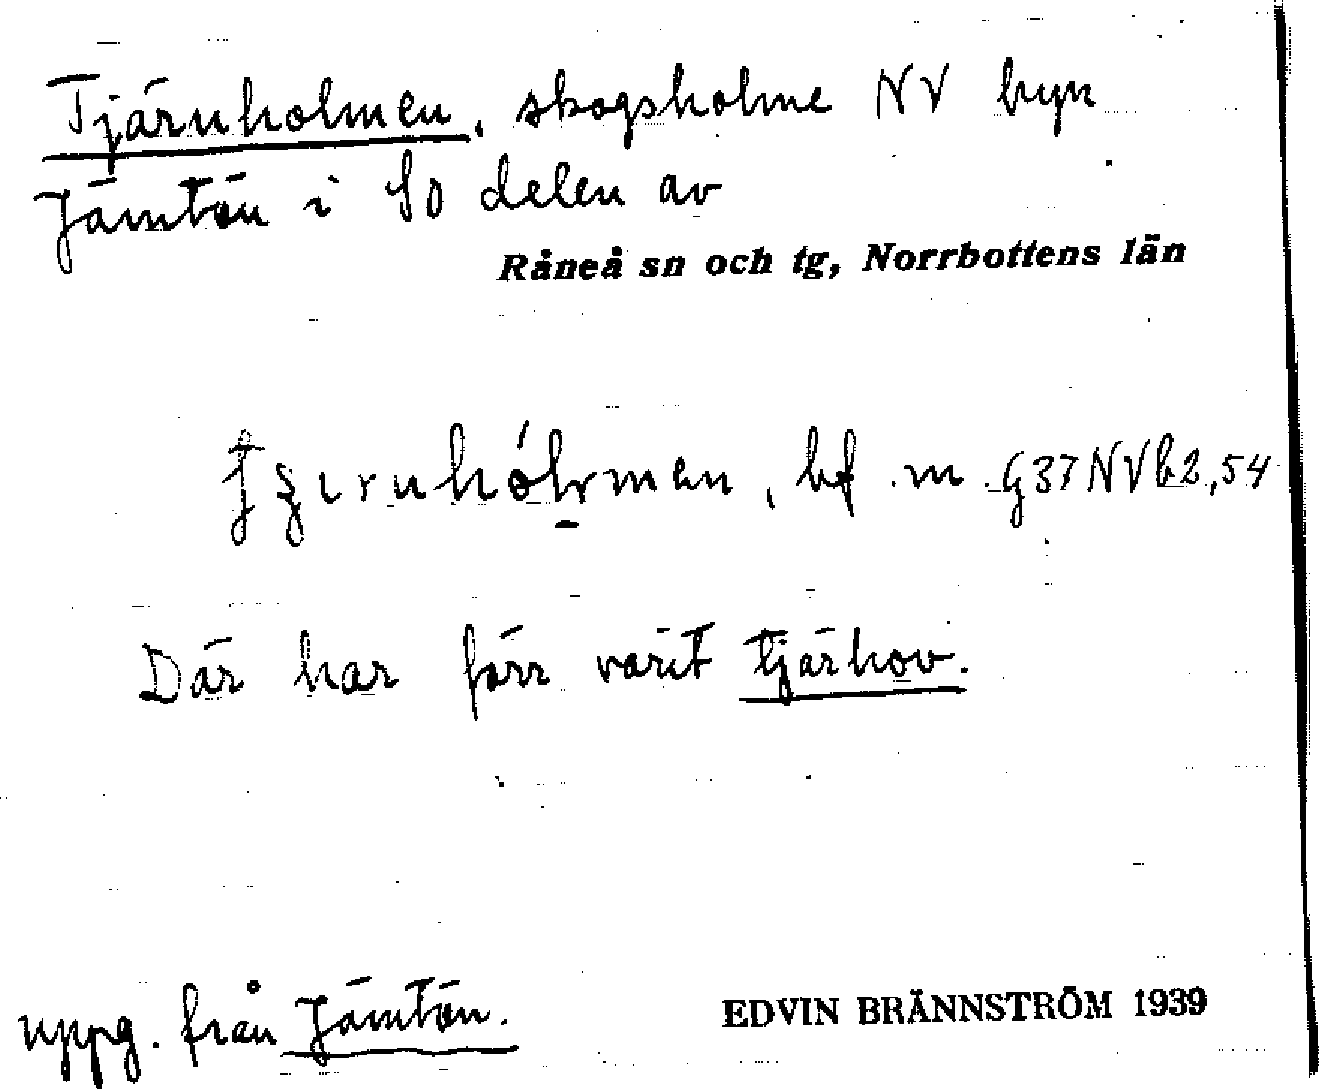 Tjärnholmen, skogsholme NV byn
Jämtön i SO delen av
Råneå sn och tg, Norrbottens län
bf. m. G37NVb2,54
Där har förr varit tjärhov.
uppg. från Jämtön.
EDVIN BRÄNNSTRÖM 1939